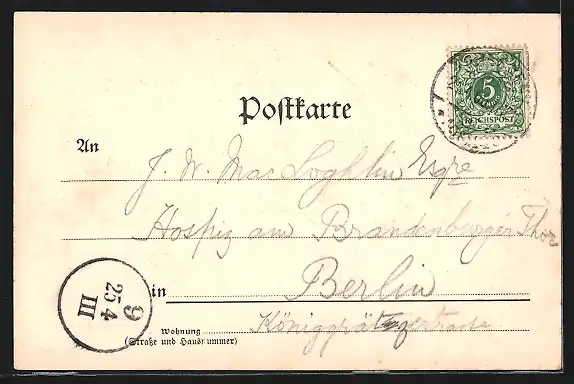 5
REICHSPOST
Postkarte
An
J. W. MacLoghlin Esqre
Hospiz am Brandenburger Thor
in Berlin
Königgrätzerstrasse
Wohnung
(Straße und Hausnummer)
9
25 4
III